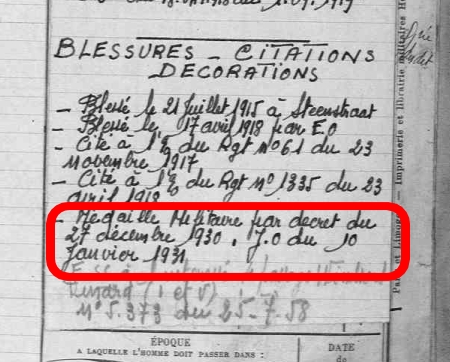 BLESSURES - CITATIONS
DECORATIONS
- Blessé le 21 Juillet 1915 à Steenstraat
- Blessé le 17 avril 1918 par E.O
- Cité à l'O. du Rgt no 61 du 23
novembre 1917
- Cité à l'O. du Rgt No 1335 du 23
avril 1918
- Médaille Militaire par décret du
27 décembre 1930. J.O du 10
Janvier 1931
No 5.373 du 25-7-58
ÉPOQUE
A LAQUELLE L'HOMME DOIT PASSER DANS :
DATE
Imprimerie et librairie militaires